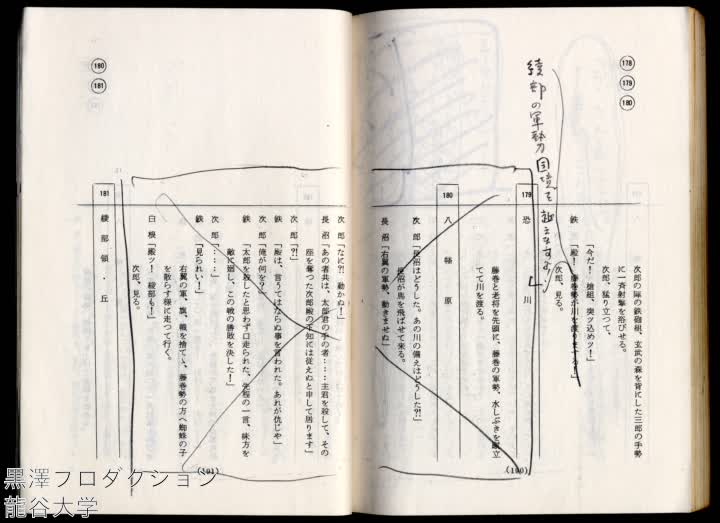 178
179
180
次郎の陣の鉄砲組、玄武の森を背にした三郎の手勢
に一斉射撃を浴びせる。
次郎、猛り立つて、
「今だ！ 槍組、突ッ込めッ！」
鉄 「殿！ 藤巻勢が川を渡りまする！」
次郎、見る。
綾部の軍勢力国境を越えなするり
179 恐川
藤巻と老将を先頭に、藤巻の軍勢、水しぶきを蹴立
てて川を渡る。
180 八幡原
次郎「長沼はどうした。あの川の備えはどうした?!」
長沼が馬を飛ばせて来る。
長沼「右翼の軍勢、動きませぬ」
(190)
180
181
次郎「なに?! 動かぬ！」
長沼「あの者共は、太郎君の手の者……主君を殺して、その
座を奪つた次郎殿の下知には従えぬと申して居ります」
次郎「?!」
鉄 「殿は、言うてはならぬ事を言われた。あれが仇じや」
次郎「俺が何を？」
鉄 「太郎を殺したと思わず口走られた、先程の一言、味方を
敵に廻し、この戦の勝敗を決した！」
次郎「……」
鉄 「見られい！」
右翼の軍、旗、幟を捨てゝ、藤巻勢の方へ蜘蛛の子
を散らす様に走つて行く。
白根「殿ッ！ 綾部も！」
次郎、見る。
181 綾部領・丘
(191)
黒澤プロダクション
龍谷大学